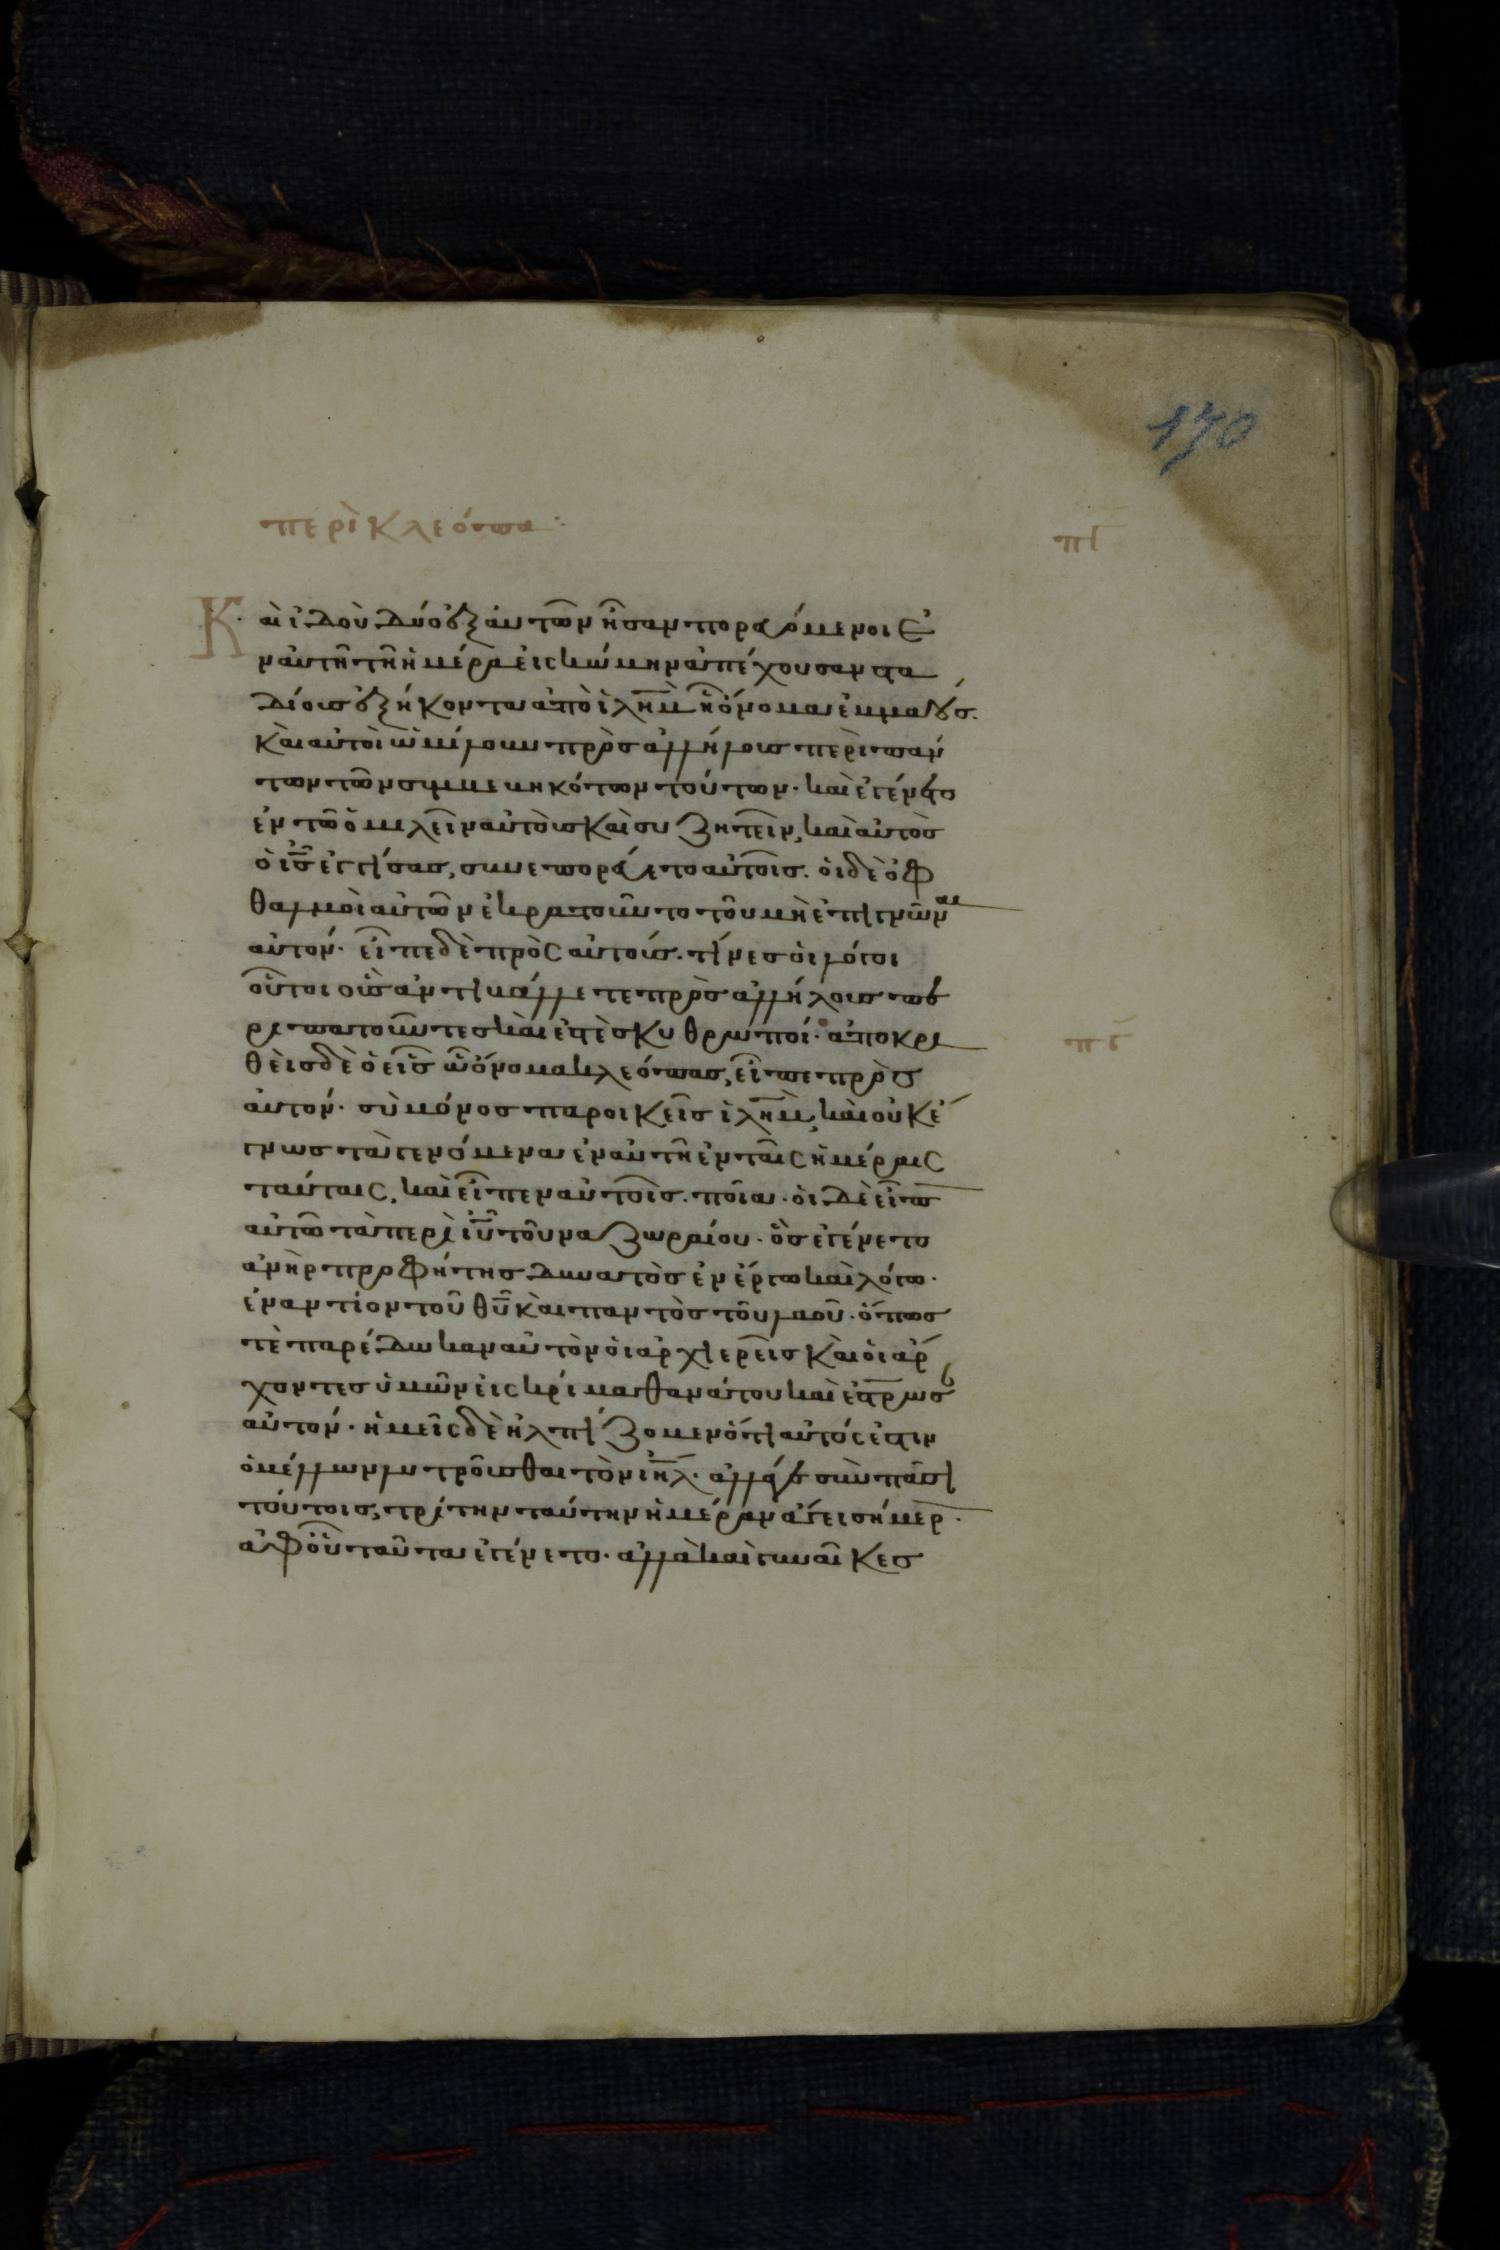 170
περὶ Κλεόπα :
πγ
Καὶ ἰδοὺ δύο ἐξ αὐτῶν ἦσαν πορευόμενοι ἐ
ν αὐτῇ τῇ ἡμέρα εἰς κώμην ἀπέχουσαν στα
δίους ἑξήκοντα ἀπὸ ἰλη̅μ̅ ἧ ὄνομα ἐμμαούσ.
καὶ αὐτοὶ ὡμίλουν πρὸσ ἀλλήλουσ περὶ πάν
των τῶν συμβεβηκότων τούτων· καὶ ἐγένετο
ἐν τῶ ὁμιλεῖν αὐτοὺσ καὶ συζητεῖν, καὶ αὐτὸσ
ὁ ι̅σ̅ ἐγγίσασ, συνεπορεύετο αὐτοῖσ. οἱ δὲ ὀφ
θαλμοὶ αὐτῶν ἐκρατοῦντο τοῦ μὴ ἐπιγνῶναι
αὐτόν· εἶπε δὲ πρὸς αὐτούσ. τίνεσ οἱ λόγοι
οὗτοι οὓσ ἀντιβάλλετε πρὸσ ἀλλήλουσ πε
ριπατοῦντεσ καὶ ἐστὲ σκυθρωποί· ἀποκρι
θεὶσ δὲ ὁ εἷσ ὧ ὄνομα κλεόπασ, εἶπε πρὸσ
αὐτόν· σὺ μόνοσ παροικεῖσ ἰλη̅μ̅, καὶ οὐκ ἔ
γνωσ τὰ γενόμενα ἐν αὐτῆ ἐν ταῖς ἡμέραις
ταύταις, καὶ εἶπεν αὐτοῖσ. ποῖα· οἱ δὲ εἶπο̅
αὐτῶ τὰ περὶ ι̅υ̅ τοῦ ναζωραίου· ὃσ ἐγένετο
ἀνὴρ προφήτησ δυνατὸσ ἐν ἔργω καὶ λόγω·
ἐναντίον τοῦ θ̅υ̅ καὶ παντὸσ τοῦ λαοῦ· ὅπωσ
τὲ παρέδωκαν αὐτὸν οἱ ἀρχιερεῖσ καὶ οἱ ἄρ
χοντεσ ὑμῶν εἰς κρίμα θανάτου καὶ ἐστ̅ρωσ
αὐτόν· ἡμεῖς δὲ ἠλπίζομεν ὅτι αὐτός ἐστιν
ὁ μέλλων λυτροῦσθαι τὸν ι̅η̅λ̅· ἀλλάγε σὺν πᾶσι
τούτοισ, τρίτην ταύτην ἡμέραν ἄγει σήμερ̅·
ἀφ οὗ ταῦτα ἐγένετο· ἀλλὰ καὶ γυναῖκεσ